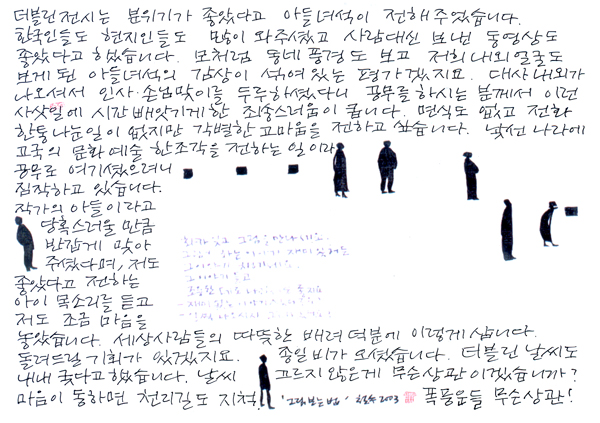 더블린 전시는 분위기가 좋았다고 아들녀석이 전해주었습니다.
한국인들도 현지인들도 많이 와주셨고 사람대신 보낸 동영상도
좋았다고 하했습니다. 모처럼 동네풍경도 보고 저희내외얼굴도
보게된 아들녀석의 감상이 섞여있는 평가겠지요. 대사내외가
나오셔서 인사·손님맞이를 두루하셨다니 공무를 하시는 분께서 이런
사삿일에 시간 빼앗기게한 죄송스러움이 큽니다. 면식도 없고 전화
한통나눈일이 없지만 각별한 고마움을 전하고 싶습니다. 낯선 나라에
고국의 문화예술 한조각을 전하는 일이라
공무로 여기셨으려니
짐작하고 있습니다.
작가의 아들이라고
당혹스러울 만큼
반갑게 맞아
주셨다며, 저도
좋았다고 전하는
아이 목소리를 듣고
저도 조금 마음을
놓았습니다. 세상사람들의 따뜻한 배려 덕분에 이렇게 삽니다.
돌려드릴 기회가 있겠지요. 종일 비가 오셨습니다. 더블린 날씨도
내내 궂다고 했습니다. 날씨 고르지 않은게 무슨상관이겠습니까?
마음이 동하면 천리길도 지척. '그림보는법' 철수 2003 폭풍운들 무슨상관!